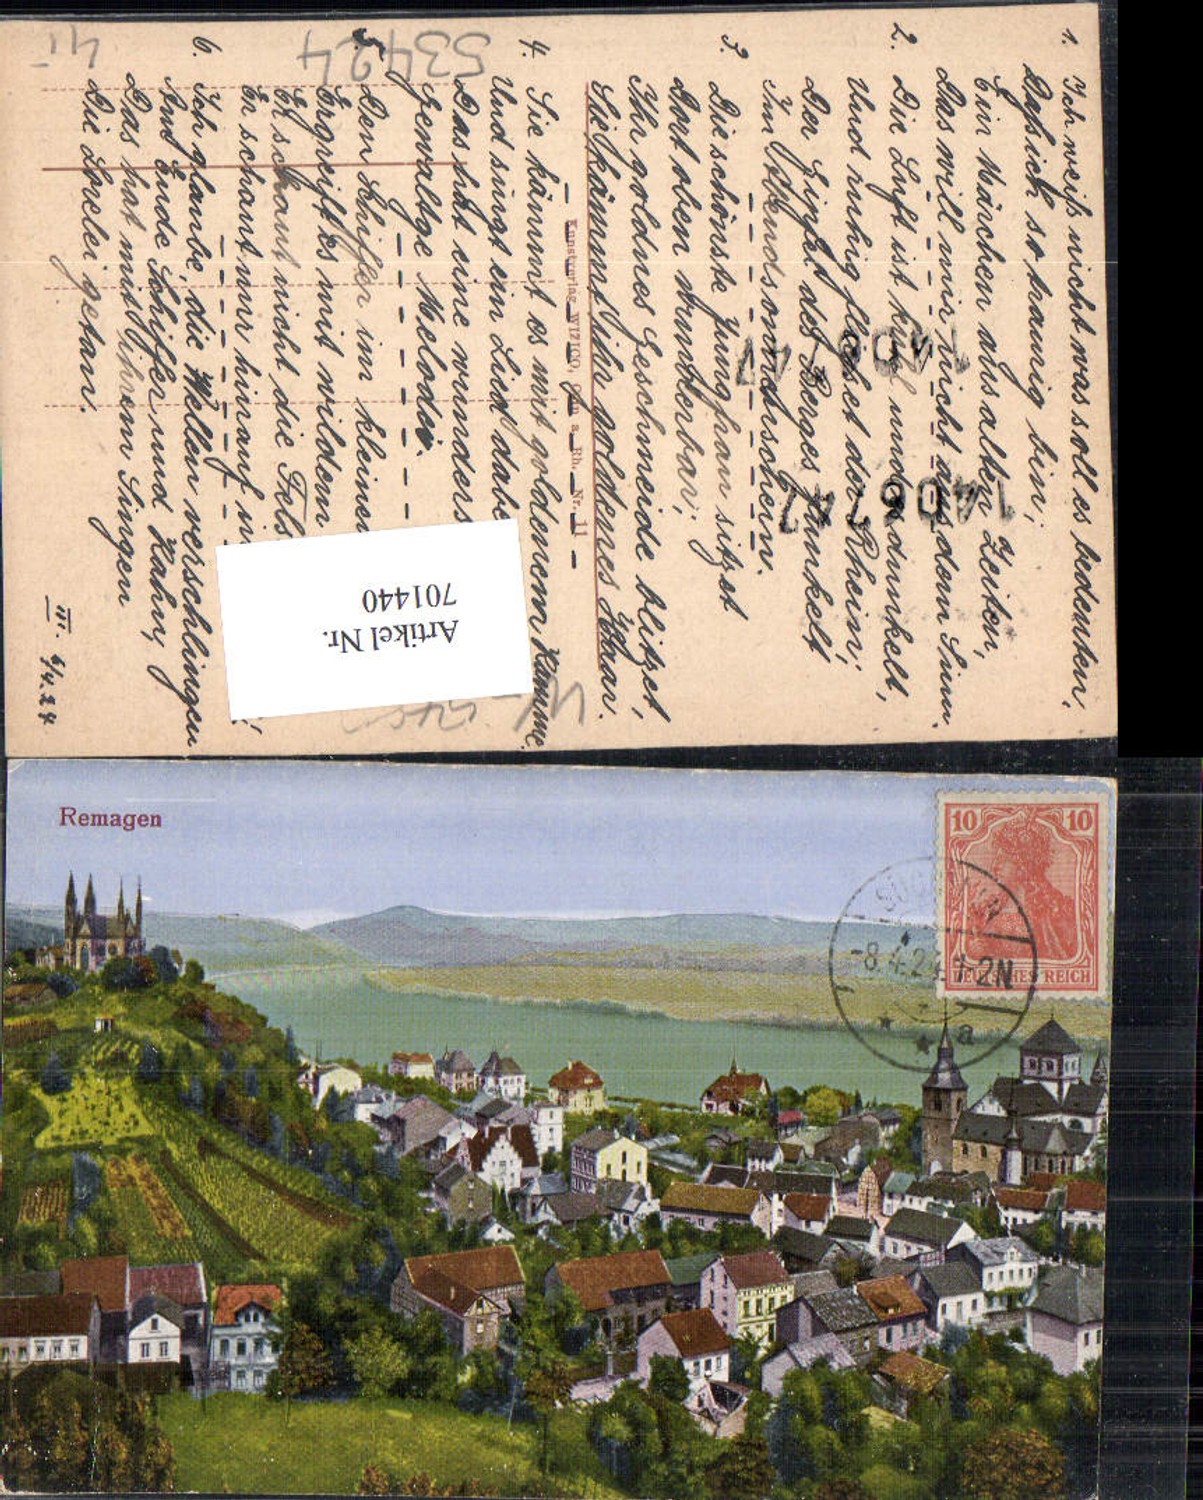 1.
Ich weiß nicht was soll es bedeuten,
Daß ich so traurig bin;
Ein Märchen aus alten Zeiten,
Das will mir nicht aus dem Sinn.
2.
Die Luft ist kühl und dunkelt,
Und ruhig fließet der Rhein;
Der Gipfel des Berges funkelt
Im Abendsonnenschein.
3.
Die schönste Jungfrau sitzet
Dort oben wunderbar;
Ihr goldnes Geschmeide blitzet,
Sie kämmt ihr goldenes Haar.
Kunstverlag WIZICO, Cöln a. Rh. Nr. 11
4.
Sie kämmt es mit goldenem Kamme
Und singt ein Lied dabe
Das hat eine wunders
Gewaltge Melodei.
5.
Den Schiffer im kleinen
Ergreift es mit wildem
Er schaut nicht die Fels
Er schaut nur hinauf in
6.
Ich glaube, die Wellen verschlingen
Am Ende Schiffer und Kahn;
Das hat mit ihrem Singen
Die Lorelei getan.
III. 9/4.24
53424
1406747
1406747
Artikel Nr.
701440
Remagen
10 10
DEUTSCHES REICH
-8.4.24.1-2N
a